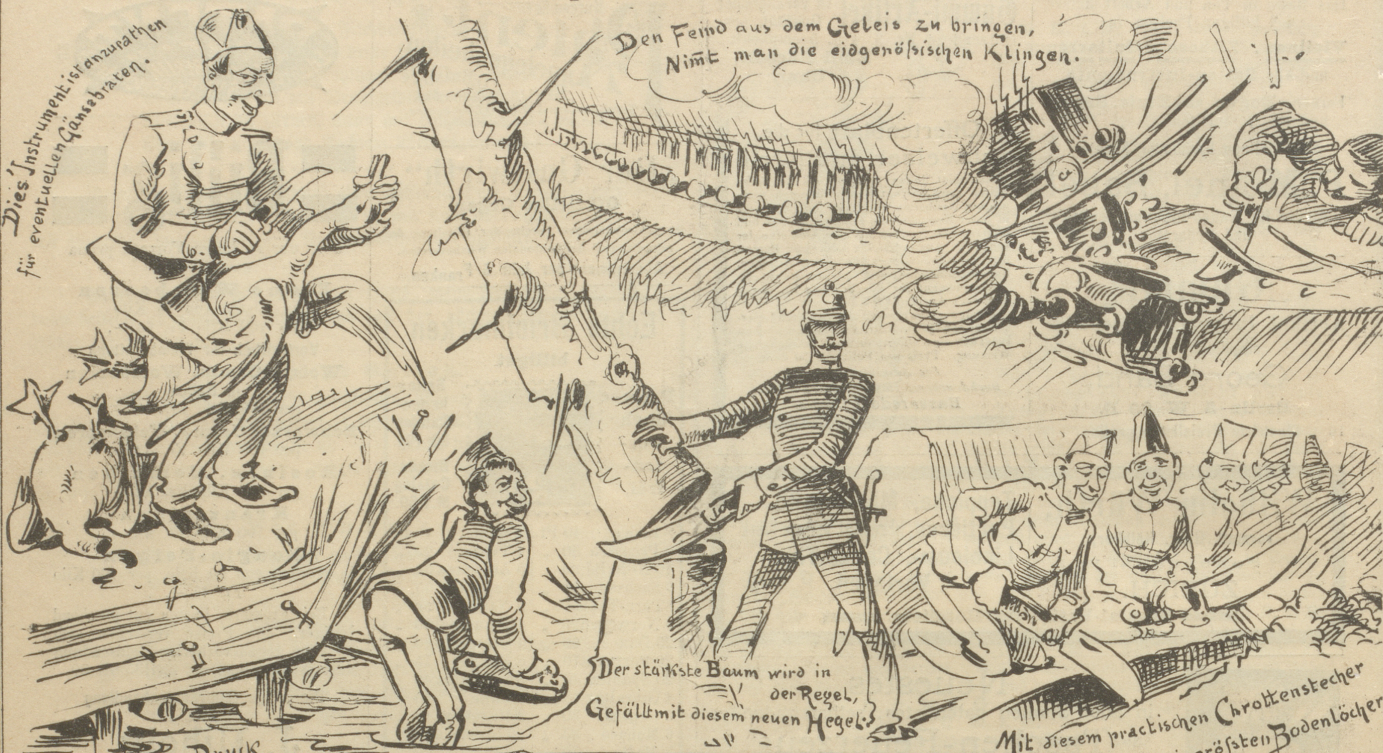 Dies' Instrument ist anzurathen
für eventuellen Gänsebraten.
Den Feind aus dem Geleis zu bringen,
Nim̅t man die eidgenößischen Klingen.
Der stärkste Baum wird in
der Regel,
Gefällt mit diesem neuen Hegel.
Mit diesem practischen Chrottenstecher
größten Bodenlöcher
Druck